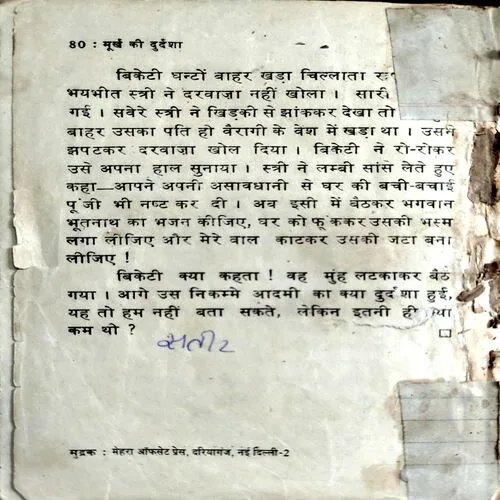 80 : मूर्ख की दुर्दशा
बिकेटी घन्टों बाहर खड़ा चिल्लाता
भयभीत स्त्री ने दरवाज़ा नहीं खोला । सारी
गई । सवेरे स्त्री ने खिड़की से झांककर देखा तो
बाहर उसका पति ही बैरागी के वेश में खड़ा था । उसने
झपटकर दरवाज़ा खोल दिया । बिकेटी ने रो-रोकर
उसे अपना हाल सुनाया । स्त्री ने लम्बी सांस लेते हुए
कहा—आपने अपनी असावधानी से घर की बची-बचाई
पूंजी भी नष्ट कर दी । अब इसी में बैठकर भगवान
भूतनाथ का भजन कीजिए, घर को फूंककर उसकी भस्म
लगा लीजिए और मेरे बाल काटकर उसकी जटा बना
लीजिए !
बिकेटी क्या कहता ! वह मुंह लटकाकर बैठ
गया । आगे उस निकम्मे आदमी का क्या दुर्दशा हुई,
यह तो हम नहीं बता सकते, लेकिन इतनी ही क्या
कम थी ?
मुद्रक : मेहरा ऑफसेट प्रेस, दरियागंज, नई दिल्ली-2